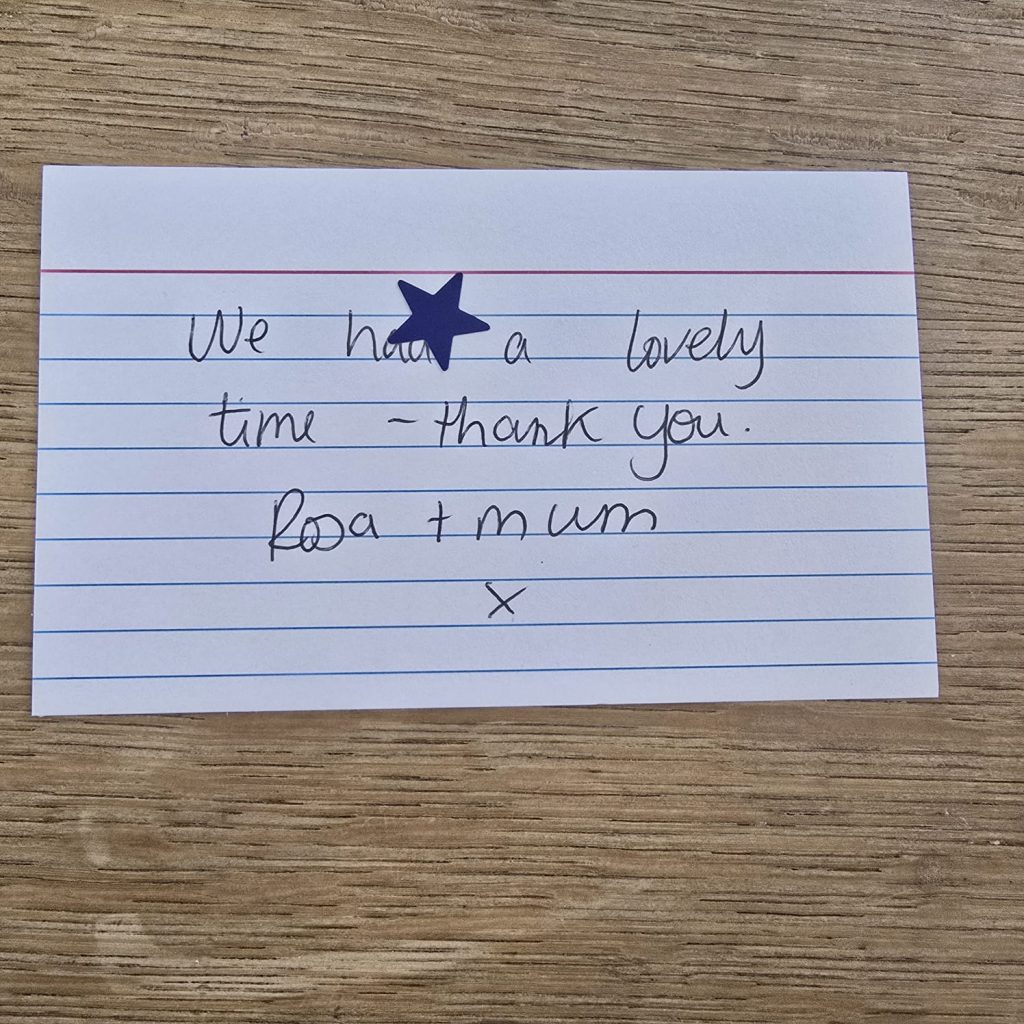 We had a lovely
time - thank you.
Rosa + mum
x